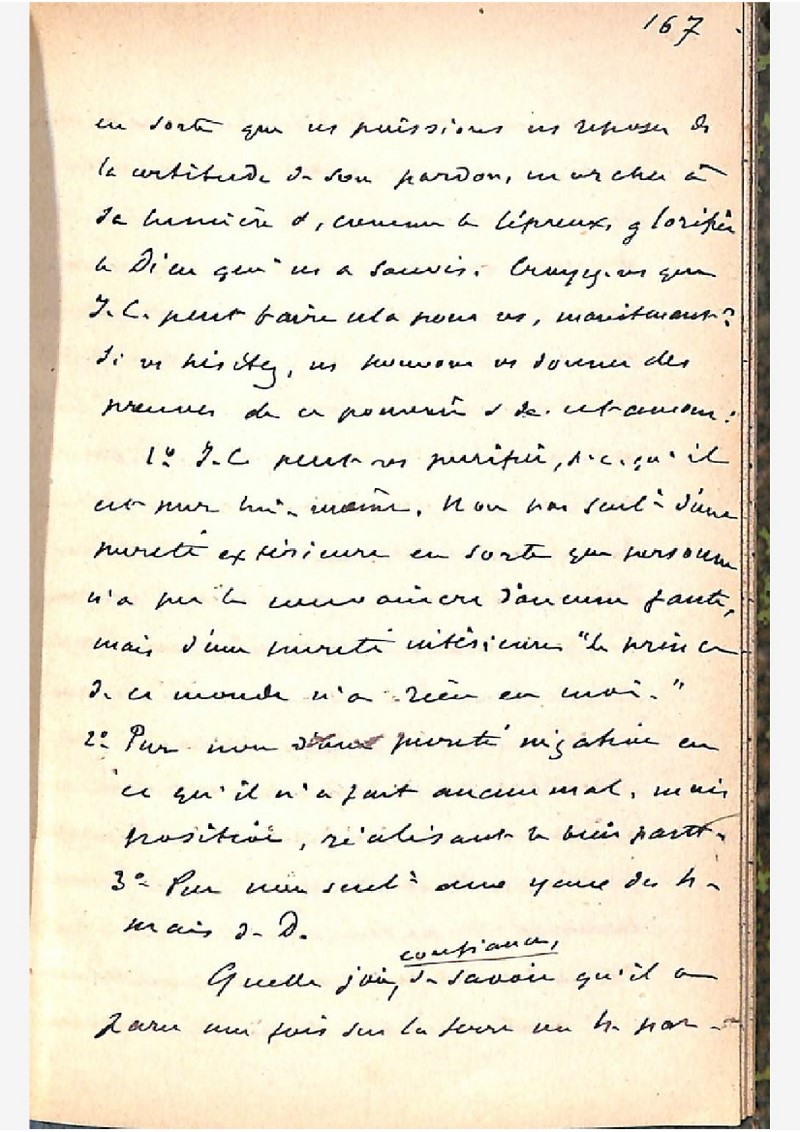 167
en sorte que ns puissions ns reposer ds
la certitude de son pardon, marcher à
sa lumière &, comme le lépreux, glorifier
le Dieu qui ns a sauvés. Croyez-vs que
J.C. peut faire cela pour vs, maintenant?
Si vs hésitez, ns pouvons vs donner des
preuves de ce pouvoir & de cet amour:
1º J.C. peut vs purifier, p.c.qu'il
est pur lui-même. Non pas seult d'une
pureté extérieure en sorte que personne
n'a pu le convaincre d'aucune faute,
mais d'une pureté intérieure "le prince
de ce monde n'a rien en moi."
2º Pur non pureté négative en
ce qu'il n'a fait aucun mal, mais
positive, réalisant le bien partt.
3º Pur non seult aux yeux des h.
mais de D.
confiance,
Quelle joie, de savoir qu'il a
paru une fois sur la terre un h. par-